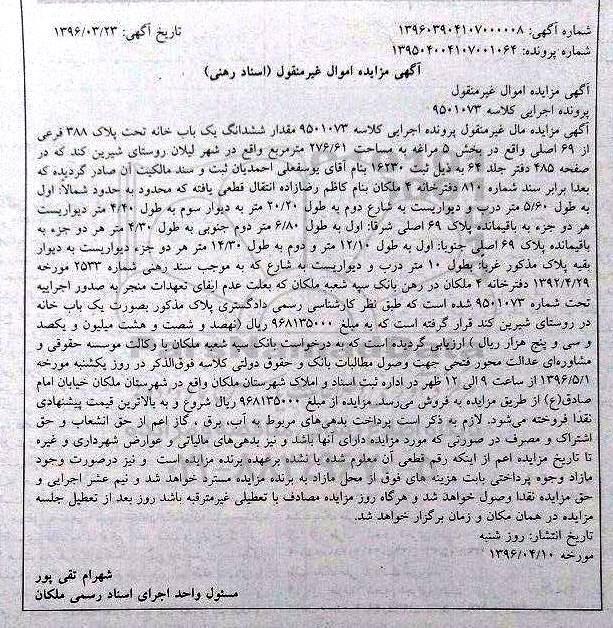 شماره آگهی: ۱۳۹۶۰۳۹۰۴۱۰۷۰۰۰۰۰۸
تاریخ آگهی: ۱۳۹۶/۰۳/۲۳
شماره پرونده: ۱۳۹۵۰۴۰۰۴۱۰۷۰۰۱۰۶۴
آگهی مزایده اموال غیرمنقول (اسناد رهنی)
آگهی مزایده اموال غیرمنقول
پرونده اجرایی کلاسه ۹۵۰۱۰۷۳
آگهی مزایده مال غیرمنقول پرونده اجرایی کلاسه ۹۵۰۱۰۷۳ مقدار ششدانگ یک باب خانه تحت پلاک ۳۸۸ فرعی
از ۶۹ اصلی واقع در بخش ۵ مراغه به مساحت ۲۷۶/۶۱ مترمربع واقع در شهر لیلان روستای شیرین کند که در
صفحه ۴۸۵ دفتر جلد ۶۴ به ذیل ثبت ۱۶۲۳۰ بنام آقای یوسفعلی احمدیان ثبت و سند مالکیت آن صادر گردیده که
بعدا برابر سند شماره ۸۱۰ دفترخانه ۴ ملکان بنام کاظم رضازاده انتقال قطعی یافته که محدود به حدود شمالا: اول
به طول ۵/۶۰ متر درب و دیواریست به شارع دوم به طول ۲۰/۲۰ متر به دیوار سوم به طول ۴/۴۰ متر دیواریست
هر دو جزء به باقیمانده پلاک ۶۹ اصلی شرقا: اول به طول ۶/۸۰ متر دوم جنوبی به طول ۴/۳۰ متر هر دو جزء به
باقیمانده پلاک ۶۹ اصلی جنوبا: اول به طول ۱۲/۱۰ متر و دوم به طول ۱۴/۳۰ متر هر دو جزء دیواریست به دیوار
بقیه پلاک مذکور غربا: بطول ۱۰ متر درب و دیواریست به شارع که به موجب سند رهنی شماره ۲۵۳۳ مورخه
۱۳۹۲/۴/۲۹ دفترخانه ۴ ملکان در رهن بانک سپه شعبه ملکان که بعلت عدم ایفای تعهدات منجر به صدور اجراییه
تحت شماره ۹۵۰۱۰۷۳ شده است که طبق نظر کارشناسی رسمی دادگستری پلاک مذکور بصورت یک باب خانه
در روستای شیرین کند قرار گرفته است که به مبلغ ۹۶۸۱۳۵۰۰۰ ریال (نهصد و شصت و هشت میلیون و یکصد
و سی و پنج هزار ریال) ارزیابی گردیده است که به درخواست بانک سپه شعبه ملکان با وکالت موسسه حقوقی و
مشاوره‌ای عدالت محور فتحی جهت وصول مطالبات بانک و حقوق دولتی کلاسه فوق‌الذکر در روز یکشنبه مورخه
۱۳۹۶/۵/۱ از ساعت ۹ الی ۱۲ ظهر در اداره ثبت اسناد و املاک شهرستان ملکان واقع در شهرستان ملکان خیابان امام
صادق(ع) از طریق مزایده به فروش می‌رسد. مزایده از مبلغ ۹۶۸۱۳۵۰۰۰ ریال شروع و به بالاترین قیمت پیشنهادی
نقدا فروخته می‌شود. لازم به ذکر است پرداخت بدهی‌های مربوط به آب، برق، گاز اعم از حق انشعاب و حق
اشتراک و مصرف در صورتی که مورد مزایده دارای آنها باشد و نیز بدهی‌های مالیاتی و عوارض شهرداری و غیره
تا تاریخ مزایده اعم از اینکه رقم قطعی آن معلوم شده یا نشده برعهده برنده مزایده است و نیز درصورت وجود
مازاد وجوه پرداختی بابت هزینه های فوق از محل مازاد به برنده مزایده مسترد خواهد شد و نیم عشر اجرایی و
حق مزایده نقدا وصول خواهد شد و هرگاه روز مزایده مصادف با تعطیلی غیرمترقبه باشد روز بعد از تعطیل جلسه
مزایده در همان مکان و زمان برگزار خواهد شد.
تاریخ انتشار: روز شنبه
مورخه ۱۳۹۶/۰۴/۱۰
شهرام تقی پور
مسئول واحد اجرای اسناد رسمی ملکان